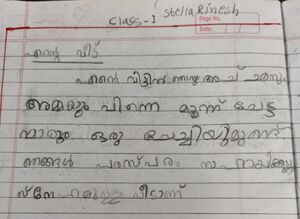 Stella Rinesh
Class-I
Page No.
Date:
എന്റെ വീട്
എന്റെ വീട്ടിൽ ഞാനും അച്ഛനും
അമ്മയും പിന്നെ മൂന്ന് ചേട്ട
ന്മാരും ഒരു ചേച്ചിയുമുണ്ട്
ഞങ്ങൾ പരസ്പരം
വീടാണ്